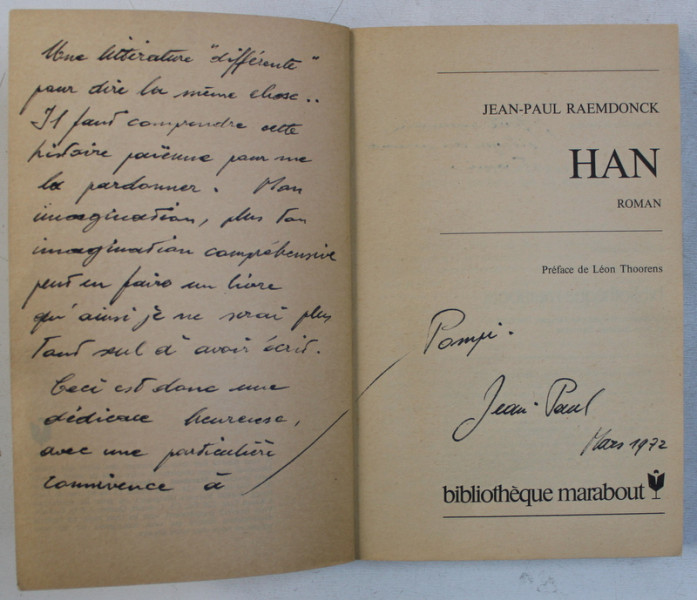 Une littérature "différente"
pour dire la même chose..
Il faut comprendre cette
histoire païenne pour me
la pardonner. Mon
imagination, plus ton
imagination compréhensive
peut en faire un livre
qu'ainsi je ne serai plus
tout seul à avoir écrit.
Ceci est donc une
dédicace heureuse,
avec une particulière
connivence à
JEAN-PAUL RAEMDONCK
HAN
ROMAN
Préface de Léon Thoorens
Pompi.
Jean-Paul
Mars 1972
bibliothèque marabout